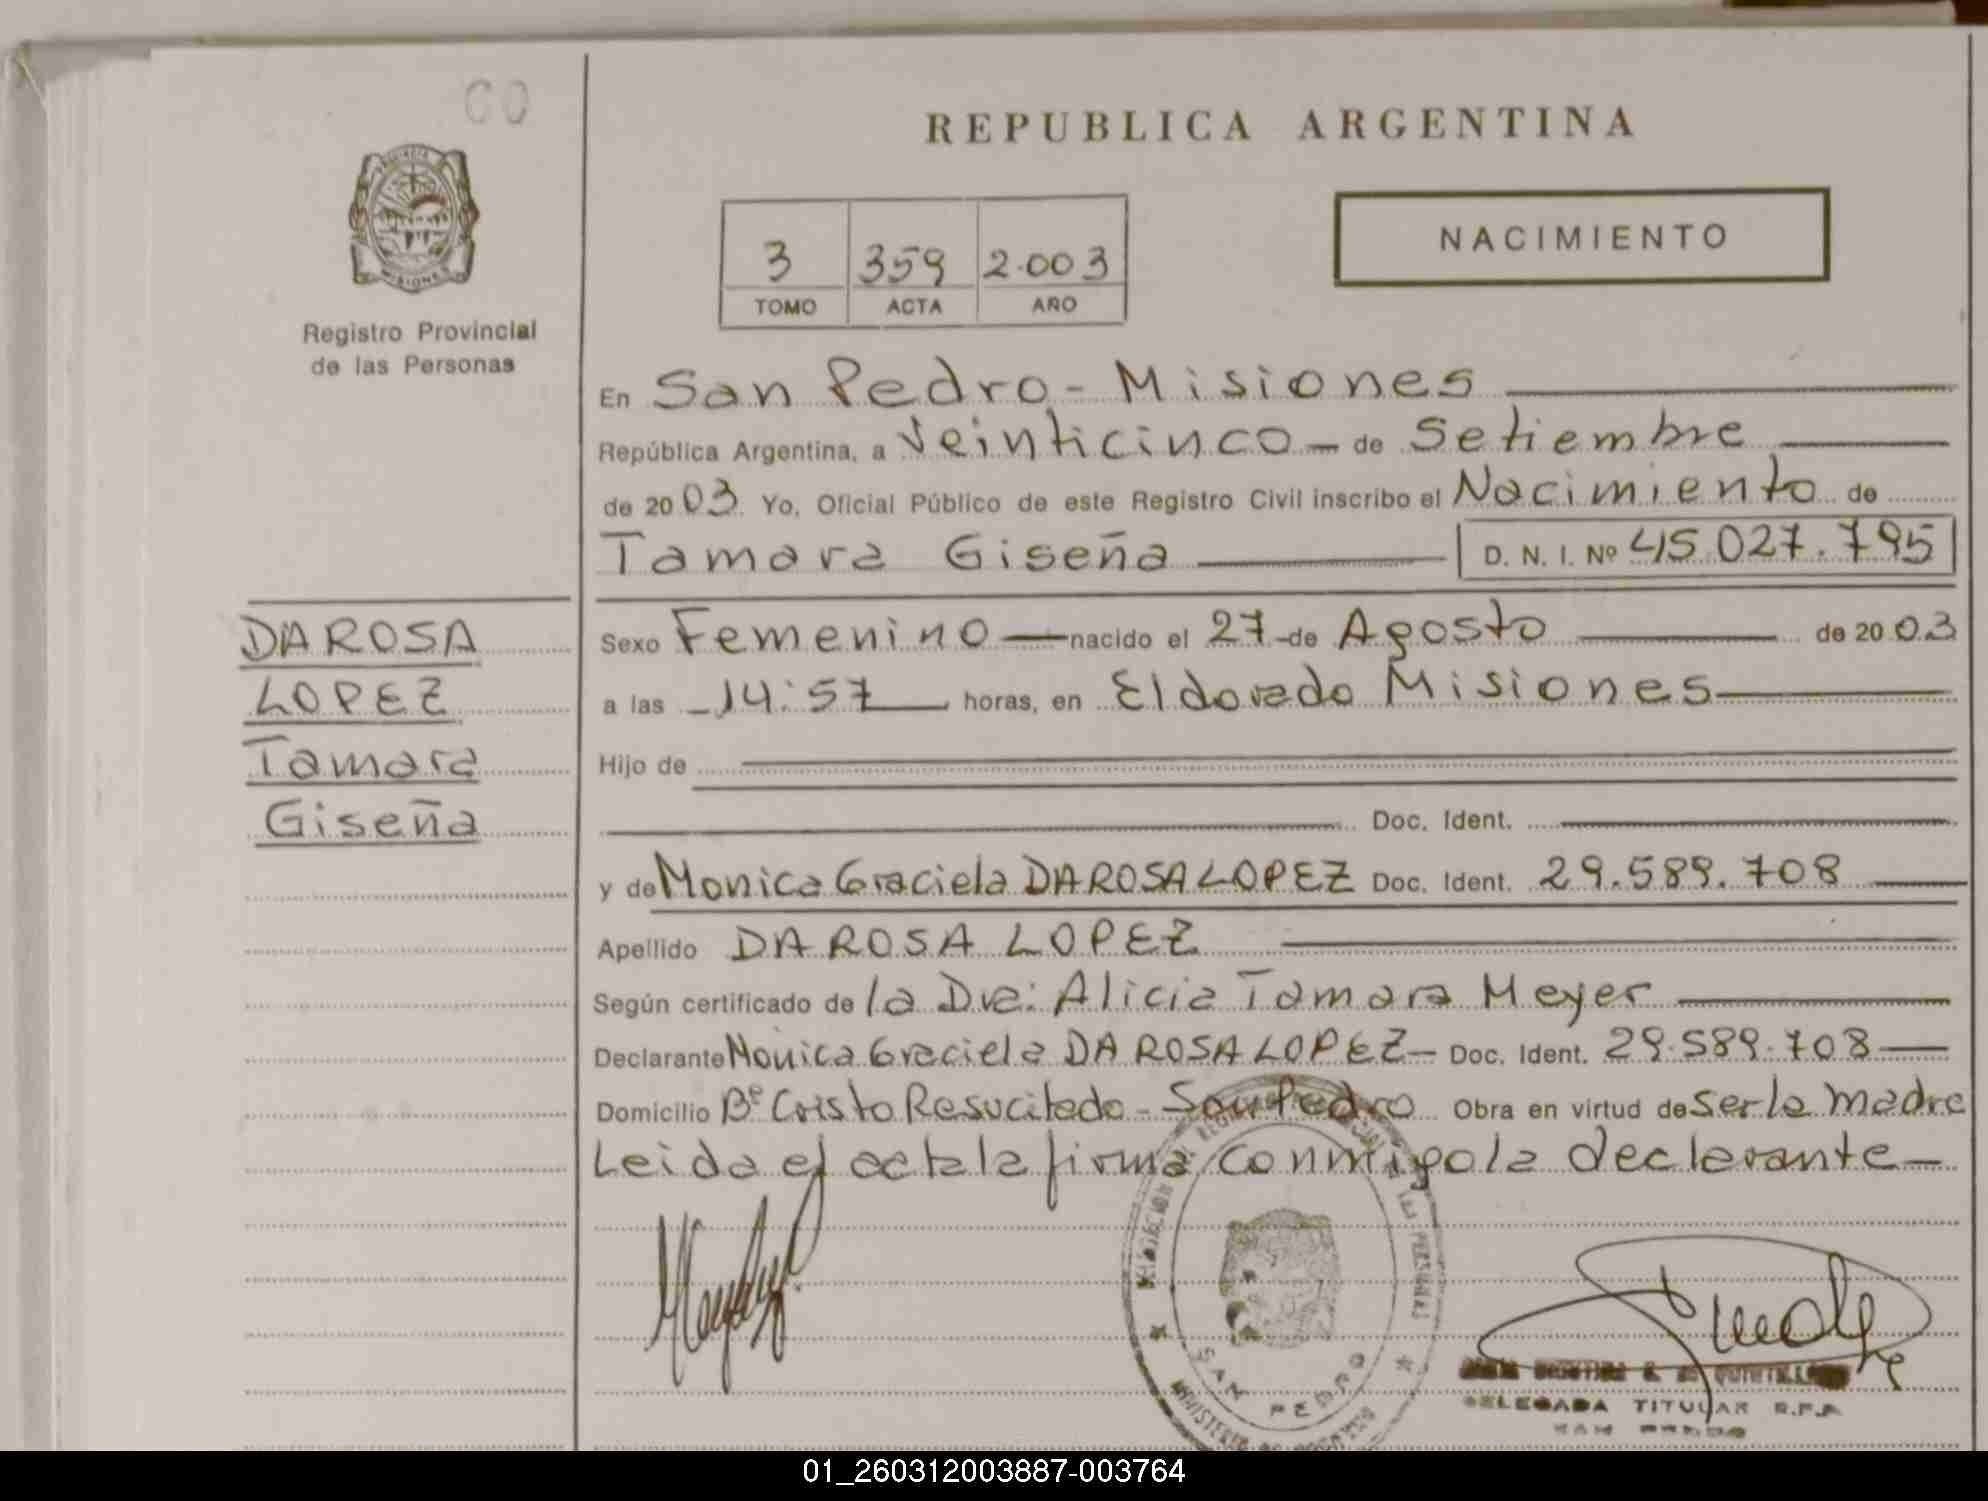 00
REPUBLICA ARGENTINA
NACIMIENTO
3 359 2.003
TOMO ACTA AÑO
MISIONES
Registro Provincial
de las Personas
En San Pedro - Misiones
República Argentina, a Veinticinco - de Setiembre
de 2003. Yo, Oficial Público de este Registro Civil inscribo el Nacimiento de
Tamara Giseña D. N. I. Nº 45.027.795
DA ROSA
LOPEZ
Tamara
Giseña
Sexo Femenino nacido el 27 - de Agosto de 2003
a las 14:57 horas, en Eldorado Misiones
Hijo de
Doc. Ident.
y de Monica Graciela DA ROSA LOPEZ Doc. Ident. 29.589.708
Apellido DA ROSA LOPEZ
Según certificado de la Dra: Alicia Tamara Meyer
Declarante Monica Graciela DA ROSA LOPEZ - Doc. Ident. 29.589.708
Domicilio Bº Cristo Resucitado - San Pedro Obra en virtud de ser la madre
Leida el acta la firma conmigo la declarante -
SAN PEDRO
DELEGADA TITULAR R.P.P.
SAN PEDRO
01_260312003887-003764